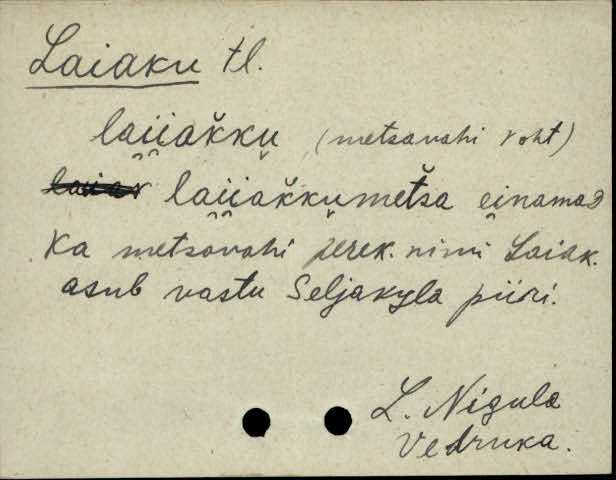 Laiaku tl.
lai̯i̯ak̆ku̬ (metsavahi koht)
lai̯i̯ak̆ku̬metša ei̯namaD
Ka metsavahi perek. nimi Laiak.
asub vastu Seljakyla piiri.
L. Nigula
Vedruka.